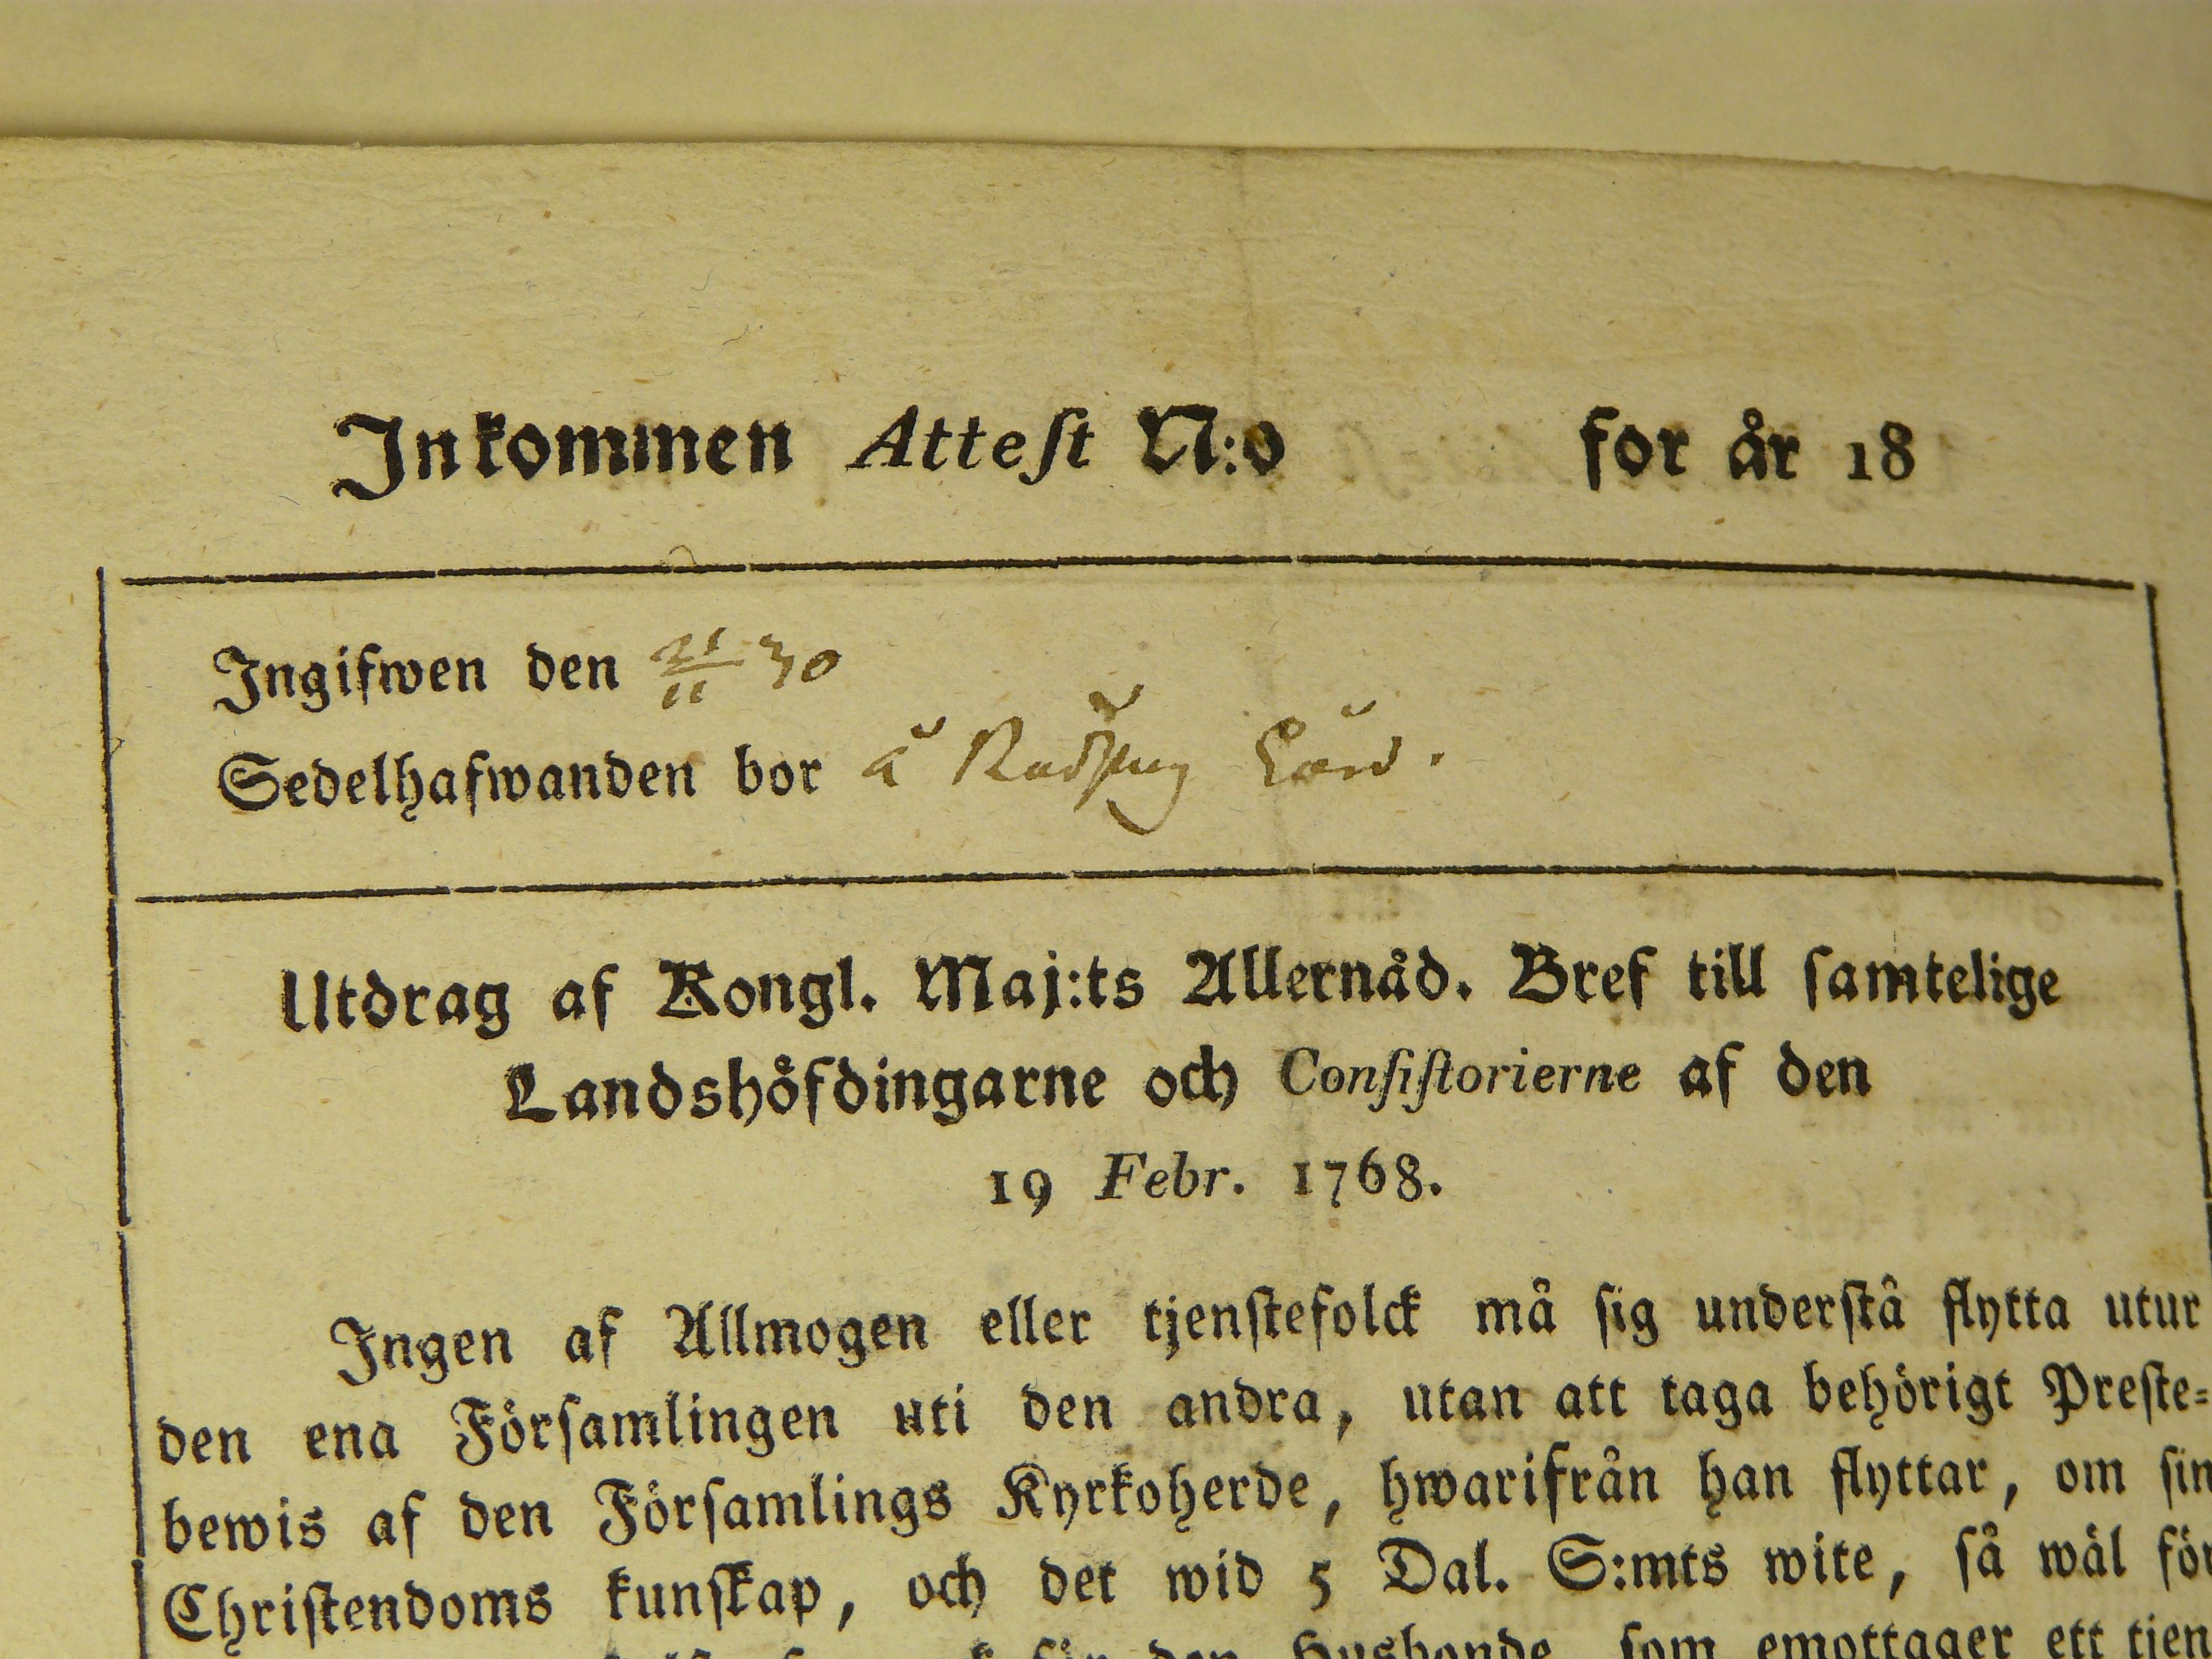 Inkommen Attest N:o for år 18
Ingifwen den 21/11 30
Sedelhafwanden bor å
Utdrag af Kongl. Maj:ts Allernåd. Bref till samtelige
Landshöfdingarne och Consistorierne af den
19 Febr. 1768.
Ingen af Allmogen eller tjenstefolck må sig understå flytta utur
den ena Församlingen uti den andra, utan att taga behörigt Preste-
bewis af den Församlings Kyrkoherde, hwarifrån han flyttar, om sin
Christendoms kunskap, och det wid 5 Dal. S:mts wite, så wäl för
den Husbonde som emottager ett tjen